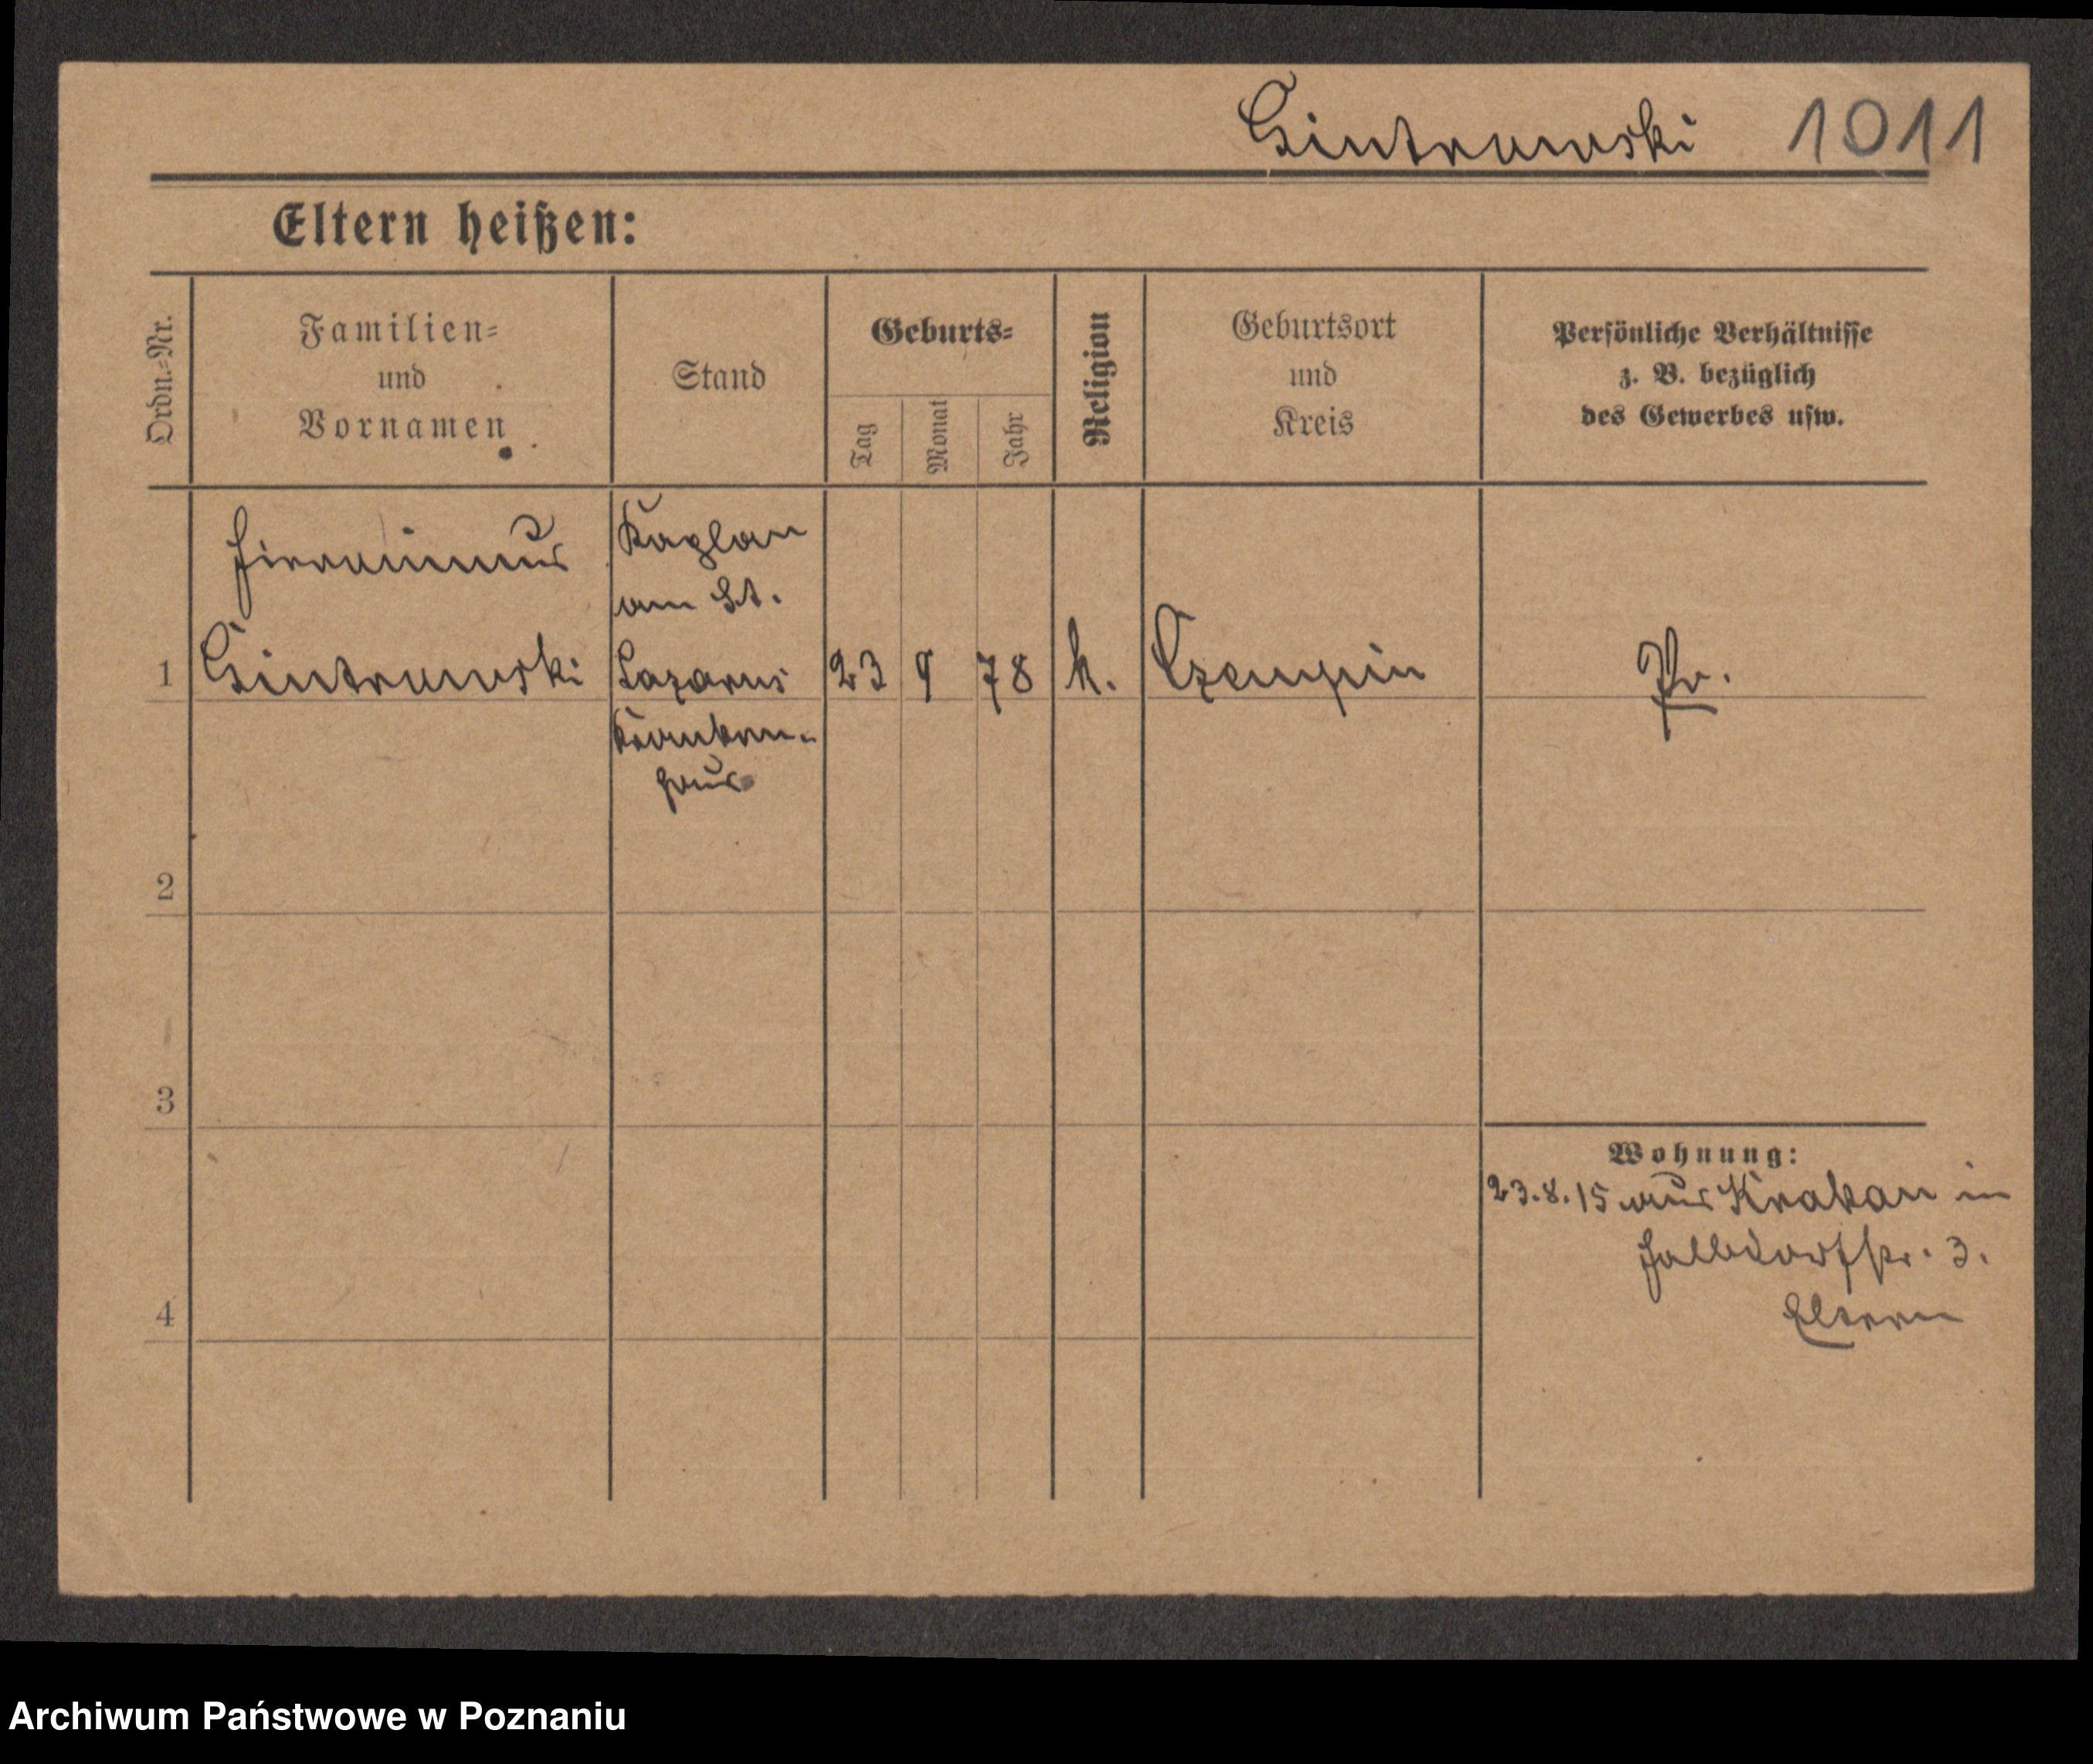 Gintrowski 1011
Eltern heißen:
Ordn.=Nr.
Familien=
und
Vornamen
Stand
Geburts=
Tag
Monat
Jahr
Religion
Geburtsort
und
Kreis
Persönliche Verhältnisse
z. B. bezüglich
des Gewerbes usw.
Hieronimus
Kaplan
am St.
1 Gintrowski Lazarus 23 9 78 k. Czempin Pr.
Kranken-
haus
2
3
4
Wohnung:
23.8.15 aus Krakau in
Halbdorfstr. 3.
Eltern
Archiwum Państwowe w Poznaniu